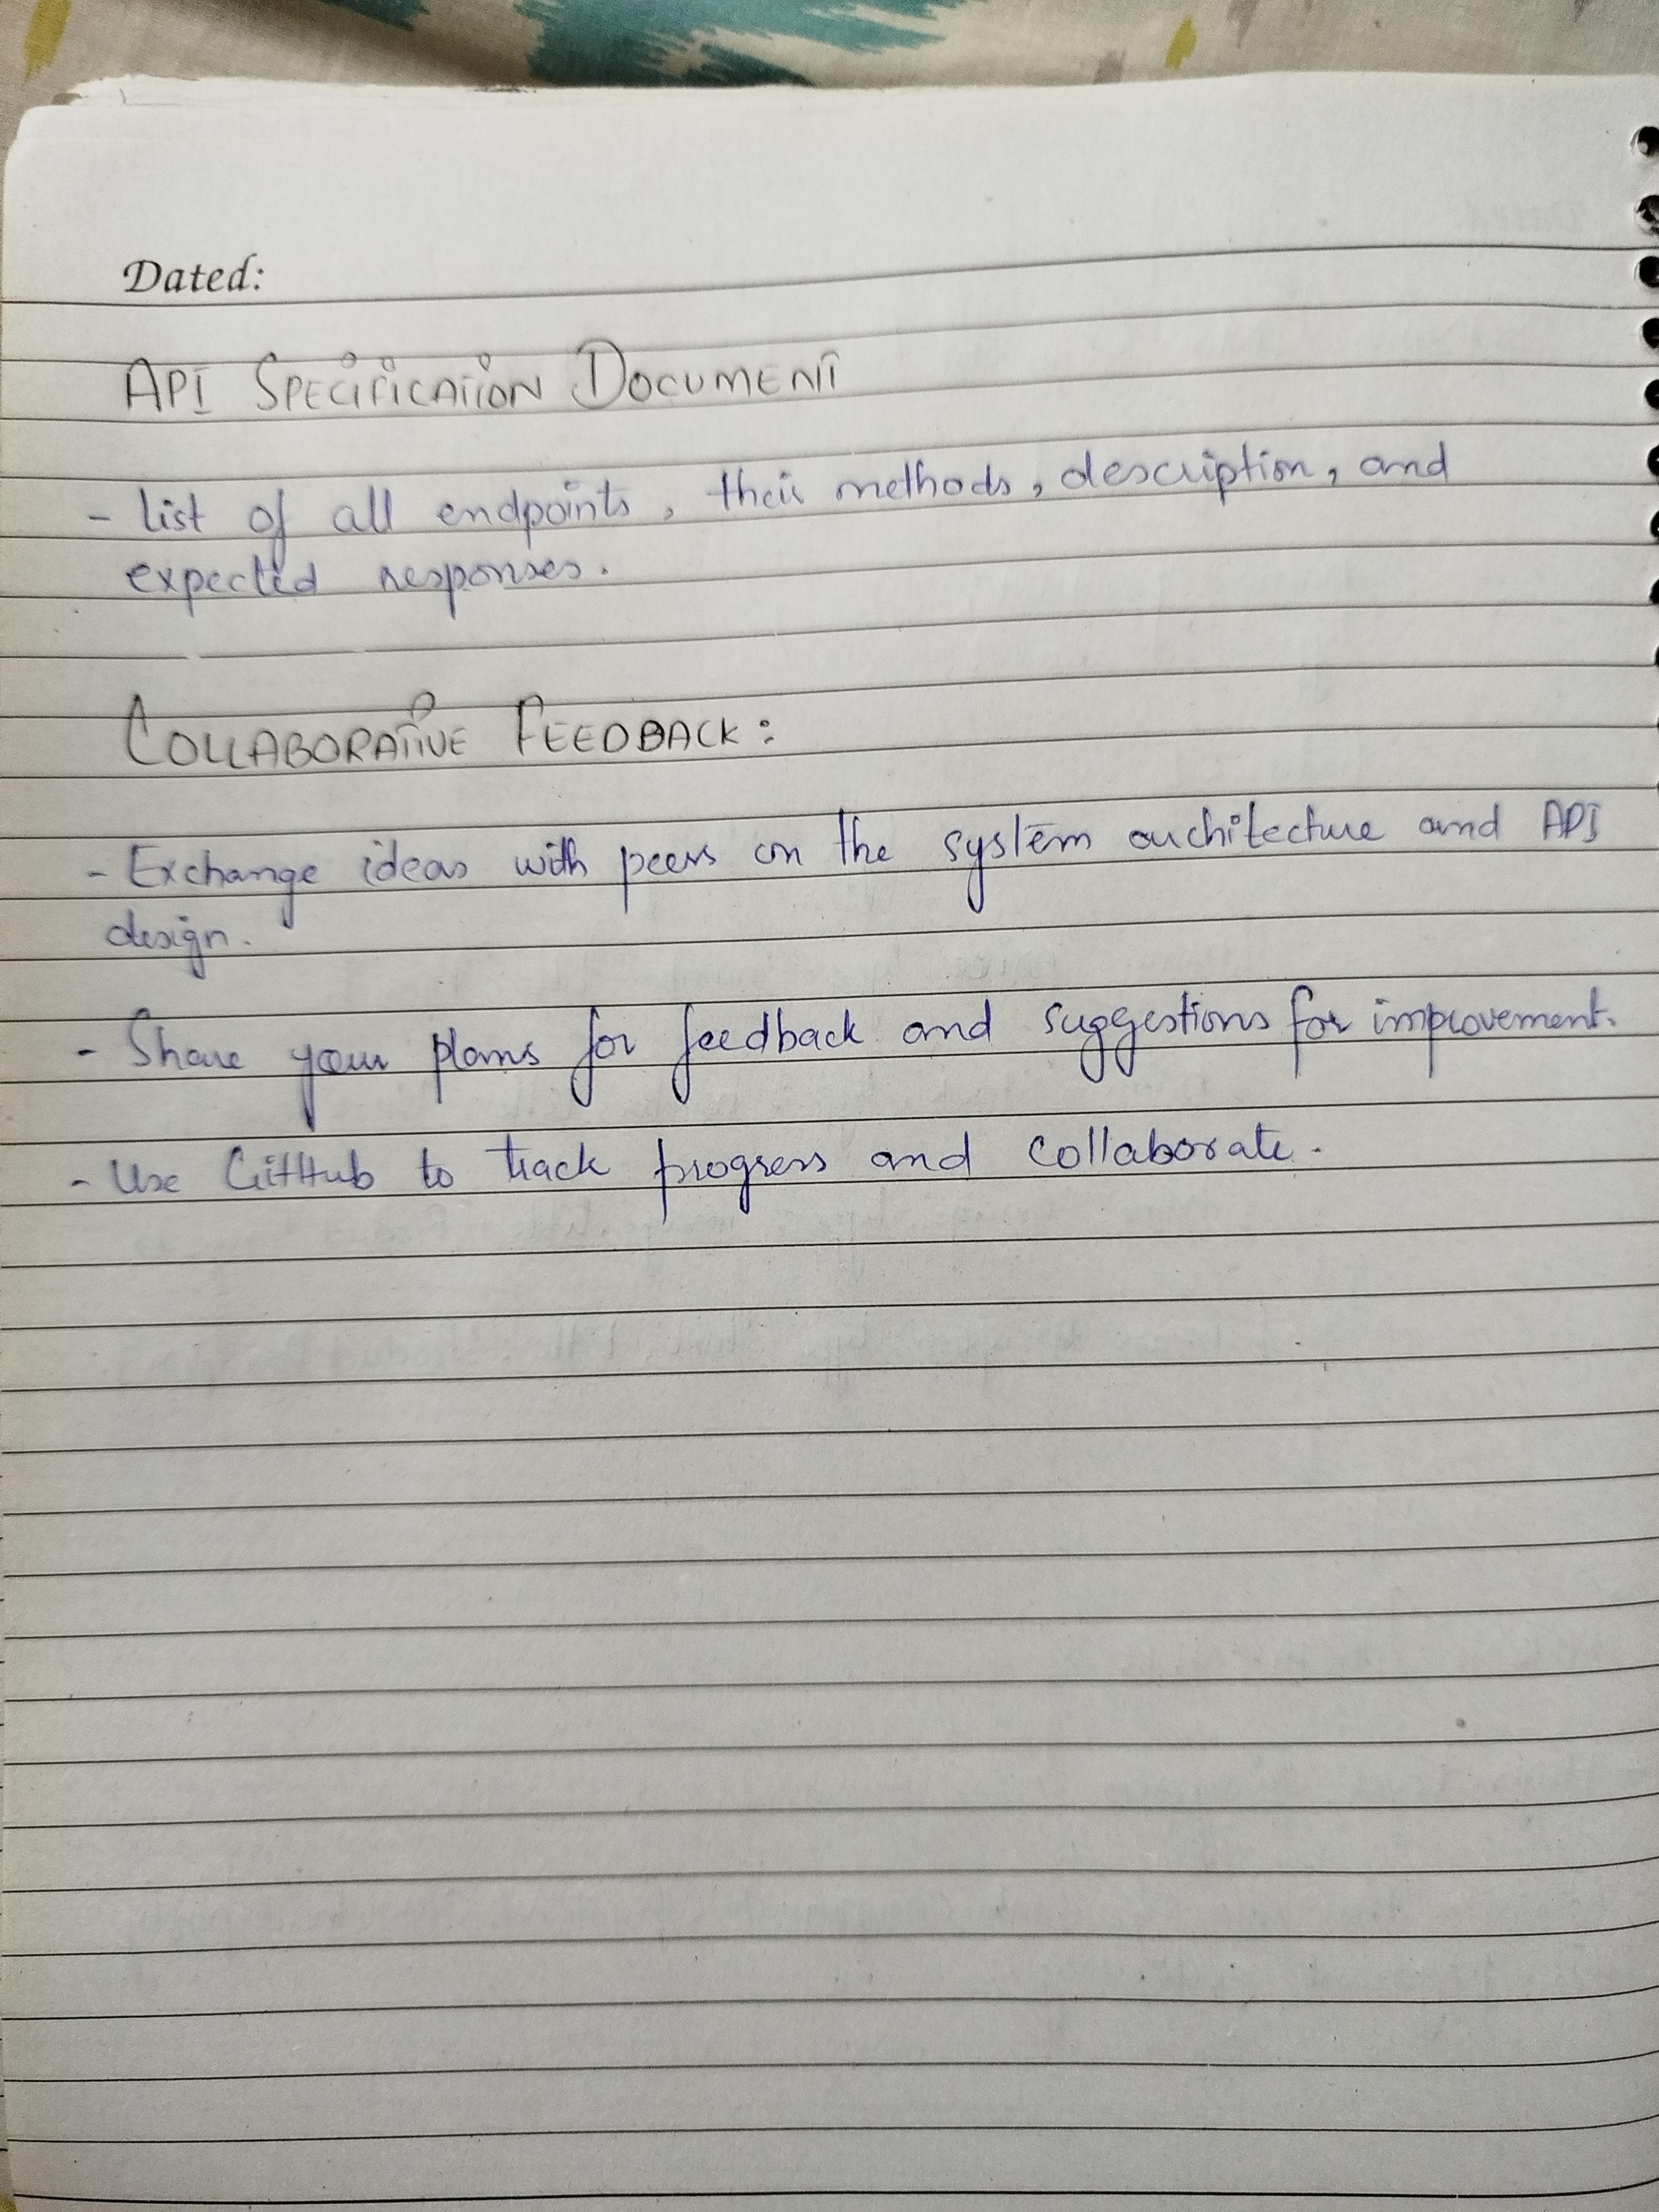 Dated:
API SPECIFICATION DOCUMENT
- list of all endpoints, their methods, description, and
expected responses.
COLLABORATIVE FEEDBACK:
- Exchange ideas with peers on the system architecture and API
design.
- Share your plans for feedback and suggestions for improvement.
- Use GitHub to track progress and collaborate.